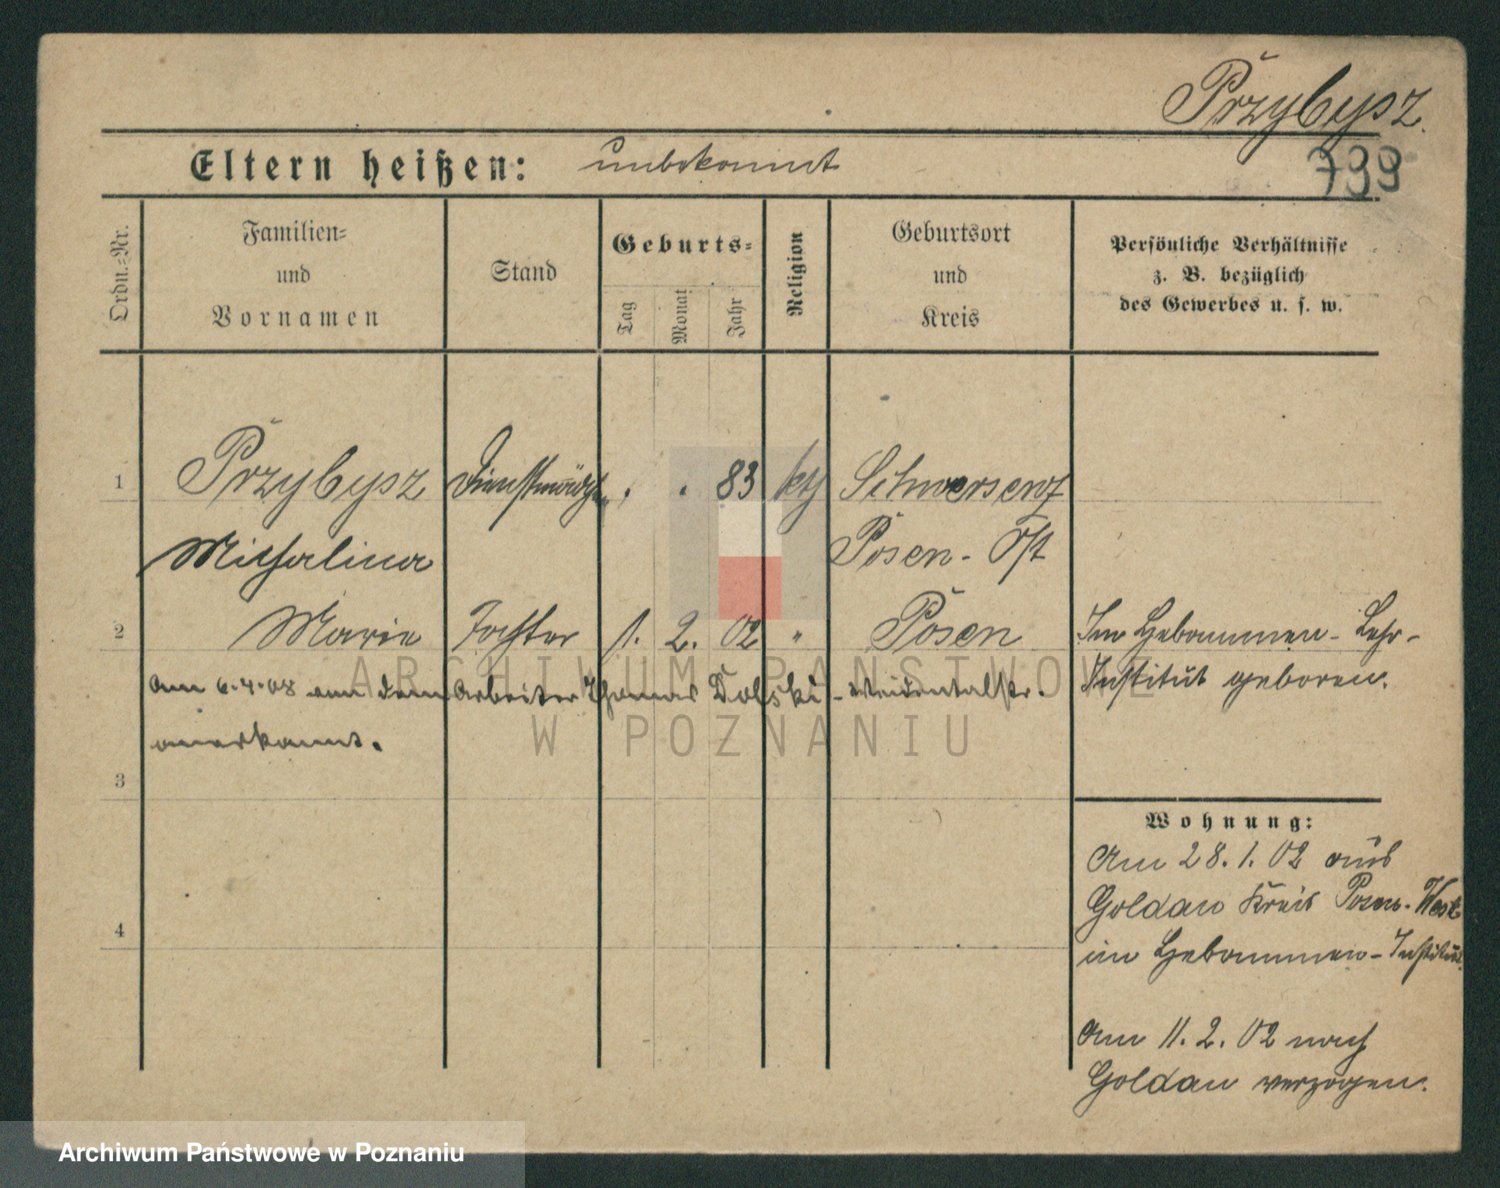 Przybysz.
799
Eltern heißen: unbekannt
Ordn.-Nr.
Familien-
und
Vornamen
Stand
Geburts-
Tag
Monat
Jahr
Religion
Geburtsort
und
Kreis
Persönliche Verhältnisse
z. B. bezüglich
des Gewerbes u. s. w.
1 Przybysz Dienstmädch. . . 83 kth Schwersenz
Michalina Posen-Ost
2 Marie Tochter 1. 2. 02 " Posen Im Hebammen-Lehr-
Institut geboren.
Am 6.4.08 von dem Arbeiter Thomas Dolski - Weidentalstr.
anerkannt.
3
Wohnung:
Am 28.1.02 aus
Goldau Kreis Posen-West
im Hebammen-Institut
4
Am 11.2.02 nach
Goldau verzogen.
ARCHIWUM PAŃSTWOWE
W POZNANIU
Archiwum Państwowe w Poznaniu